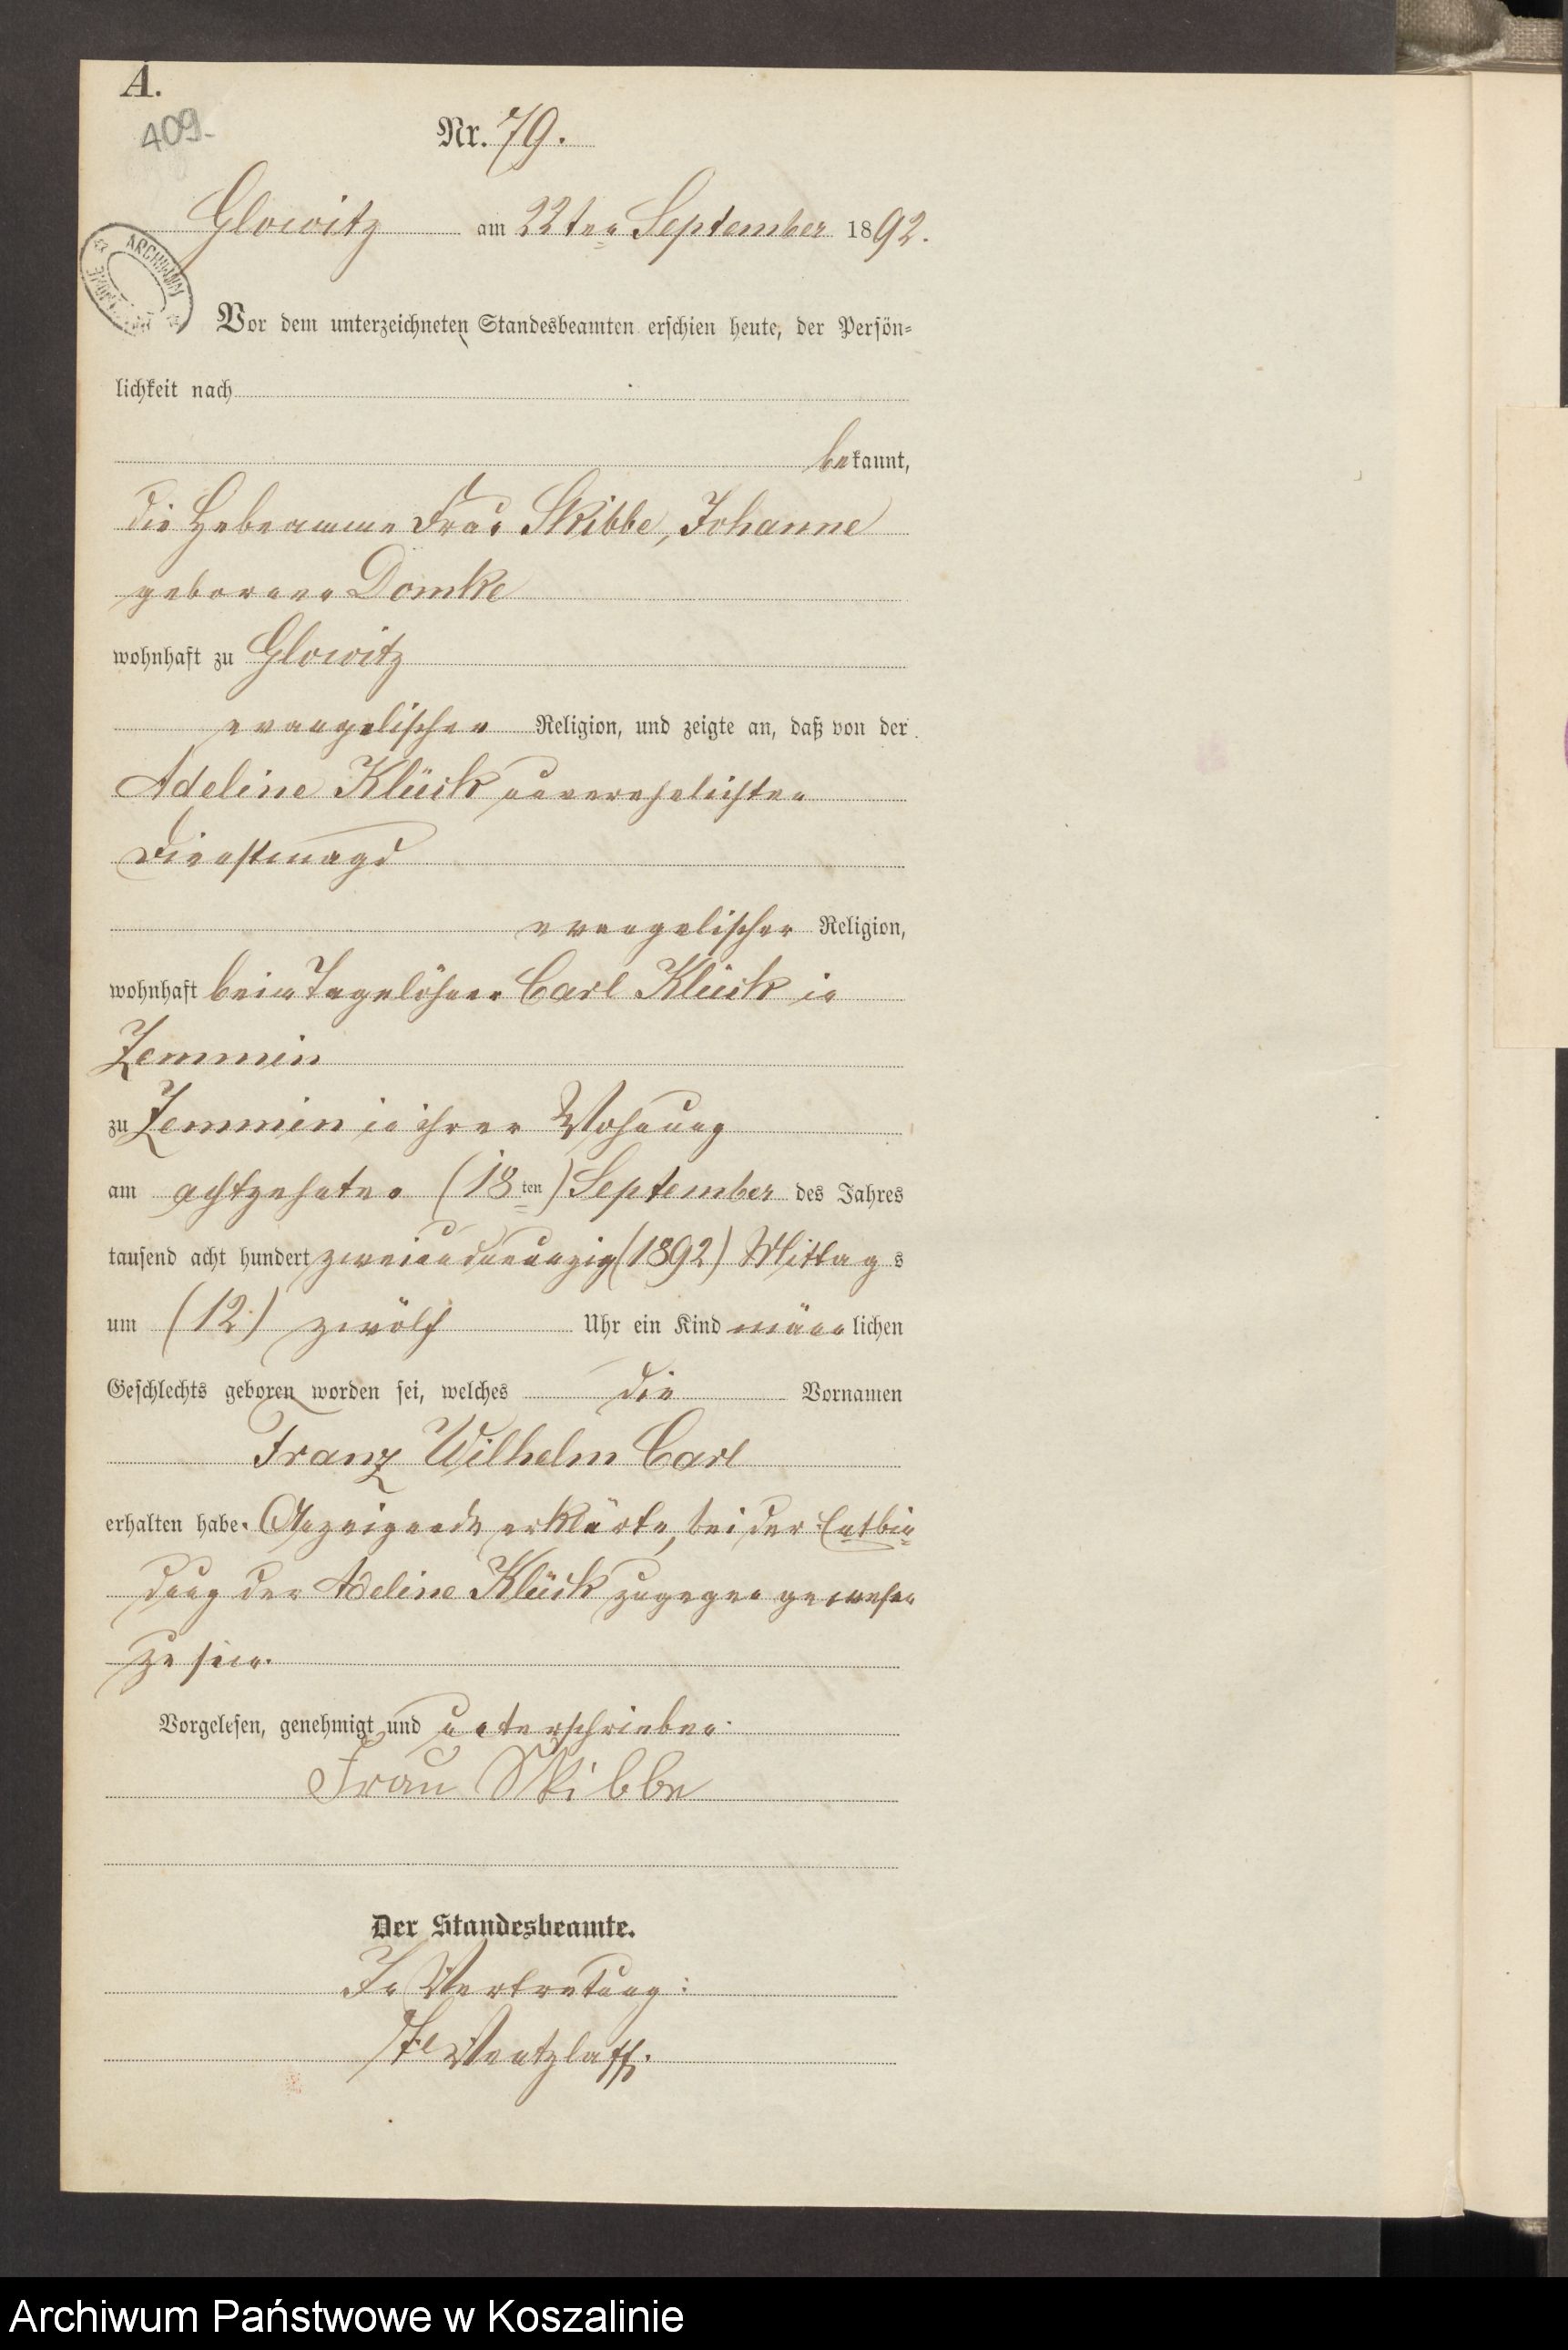 A.
409.
Nr. 79.
Glowitz am 22ten September 1892.
ARCHIWUM
Vor dem unterzeichneten Standesbeamten erschien heute, der Persön-
lichkeit nach
bekannt,
die Hebeamme Frau Skibbe, Johanne
geborene Domke
wohnhaft zu Glowitz
evangelischen Religion, und zeigte an, daß von der
Adeline Klück unverehelichten
Dienstmagd
evangelischer Religion,
wohnhaft beim Tagelöhner Carl Klück in
Zemmin
zu Zemmin in ihrer Wohnung
am achtzehnten (18ten) September des Jahres
tausend acht hundert zweiundneunzig (1892) Mittags
um (12.) zwölf Uhr ein Kind männlichen
Geschlechts geboren worden sei, welches die Vornamen
Franz Wilhelm Carl
erhalten habe. Anzeigende erklärte, bei der Entbin-
dung der Adeline Klück zugegen gewesen
zu sein.
Vorgelesen, genehmigt und unterschrieben.
Frau Skibbe
Der Standesbeamte.
In Vertretung:
Wentzlaff.
Archiwum Państwowe w Koszalinie